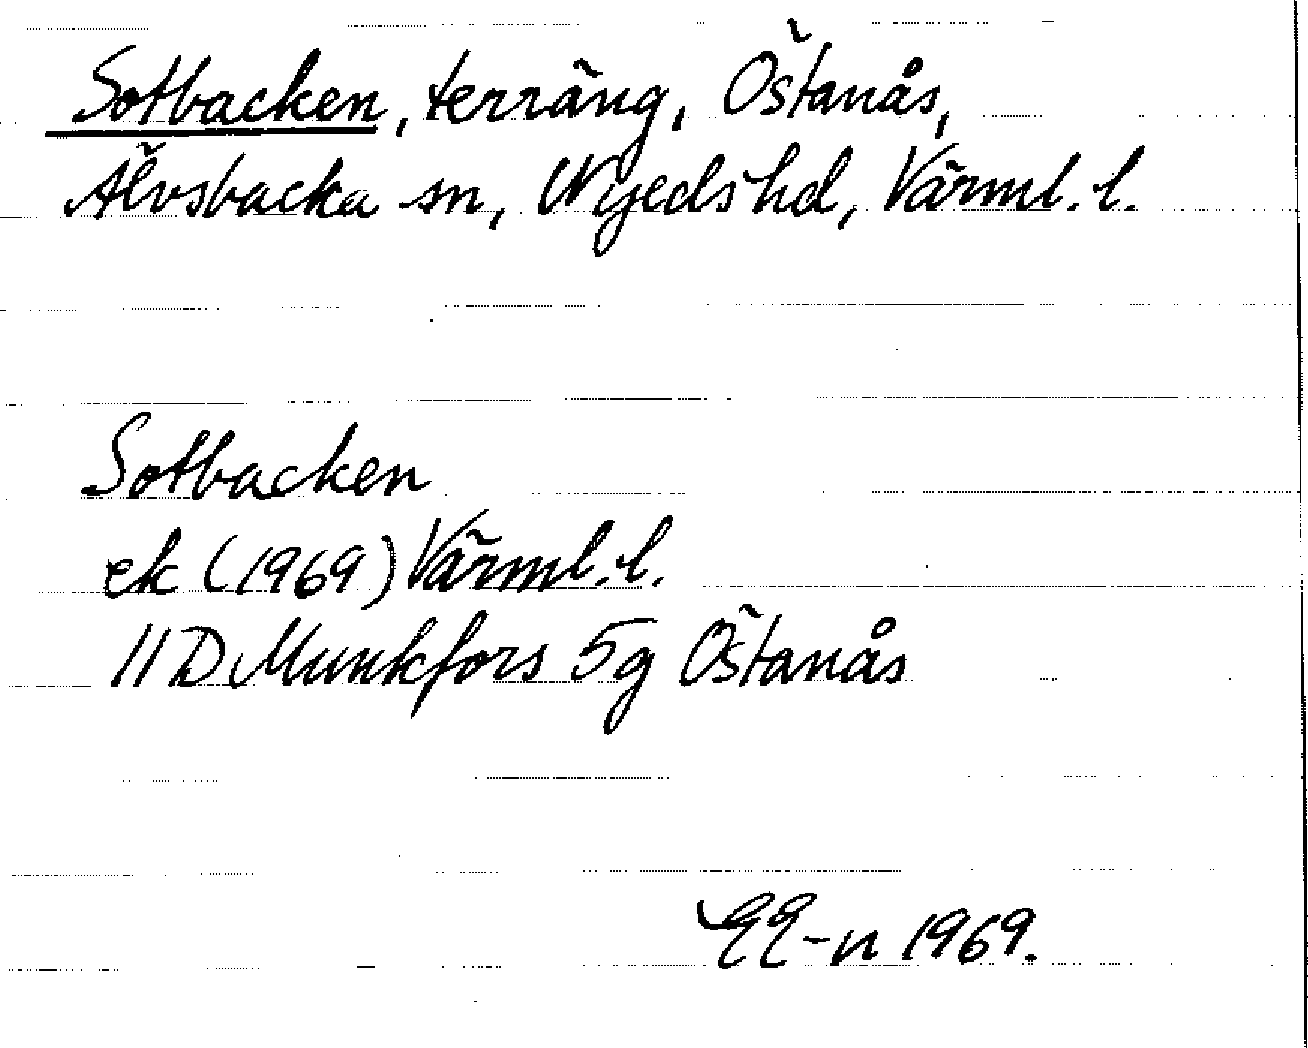 Sotbacken, terräng, Östanås,
Älvsbacka sn, Nyeds hd, Värml. l.
Sotbacken
ek (1969) Värml. l.
11D Munkfors 5g Östanås
1969.